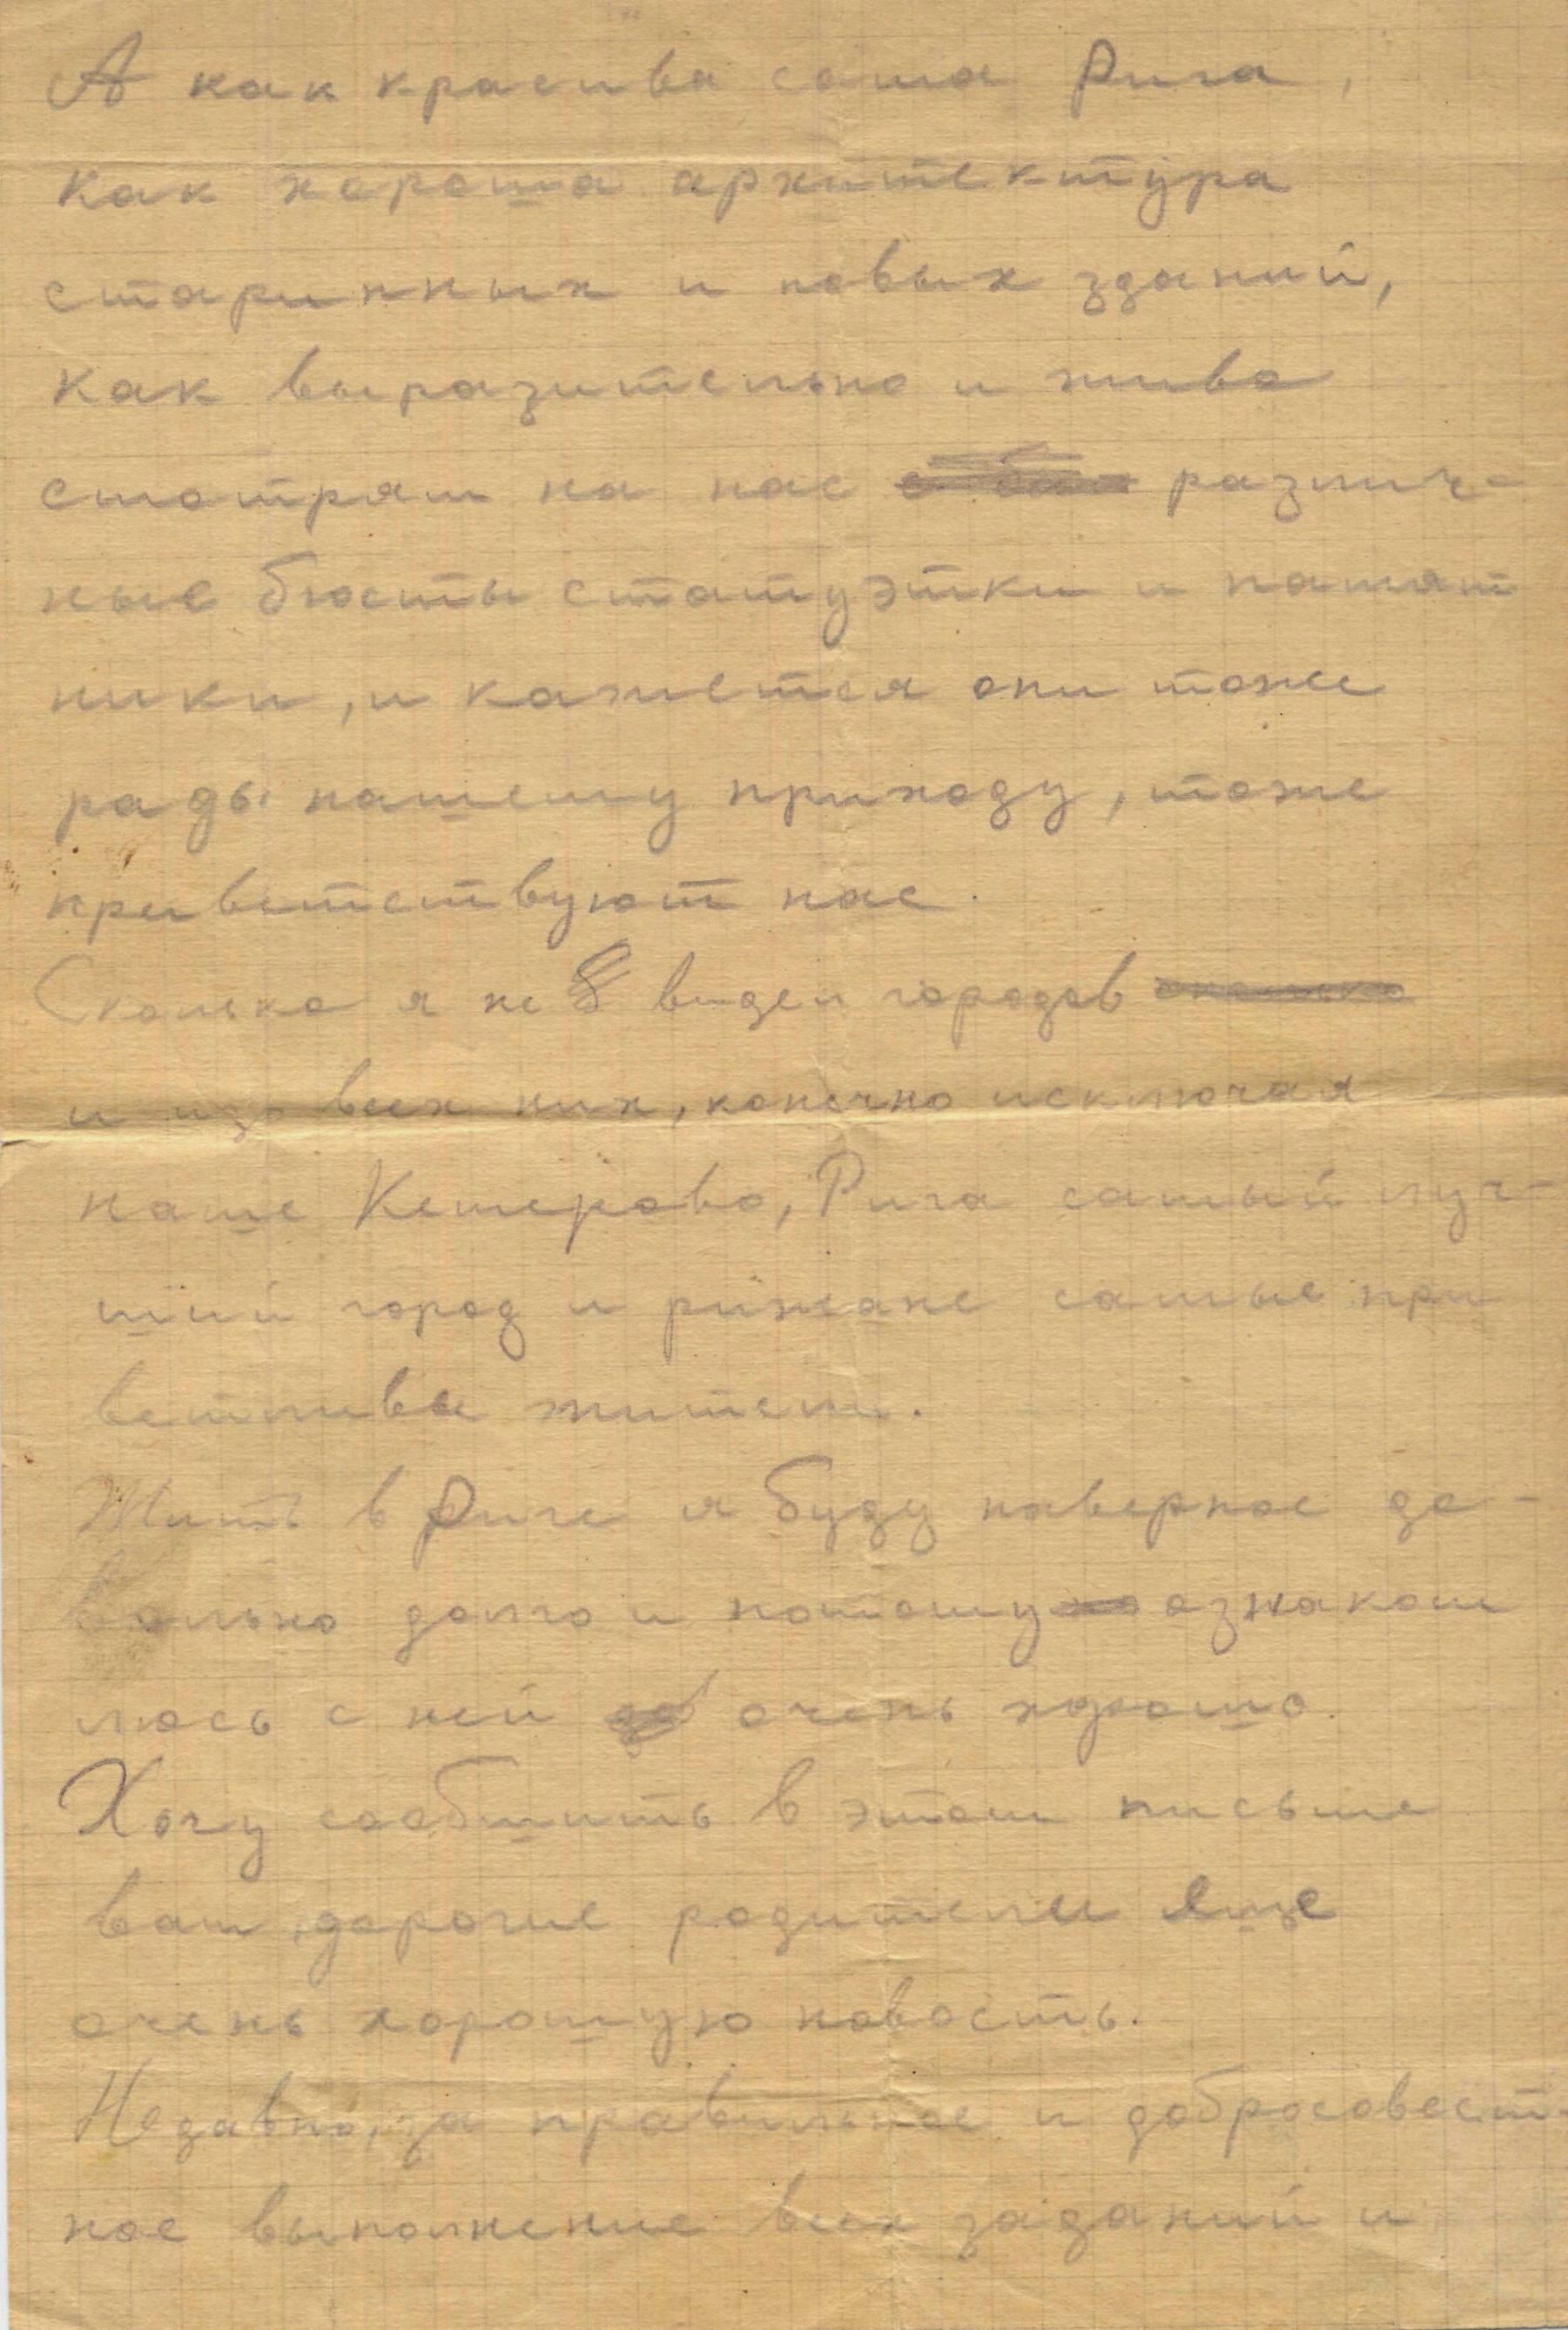 А как красива сама Рига,
как хороша архитектура
старинных и новых зданий,
как выразительно и живо
смотрят на нас различ-
ные бюсты статуэтки и памят
ники, и кажется они тоже
рады нашему приходу, тоже
приветствуют нас.
Сколько я не видел городов сколько
и изо всех них, конечно исключая
наше Кемерово, Рига самый луч-
ший город и рижане самые при
ветливые жители.
Жить в Риге я буду наверное до-
вольно долго и потому ознаком
люсь с ней очень хорошо.
Хочу сообщить в этом письме
вам, дорогие родители еще
очень хорошую новость.
Недавно, за правильное и добросовест-
ное выполнение всех заданий и